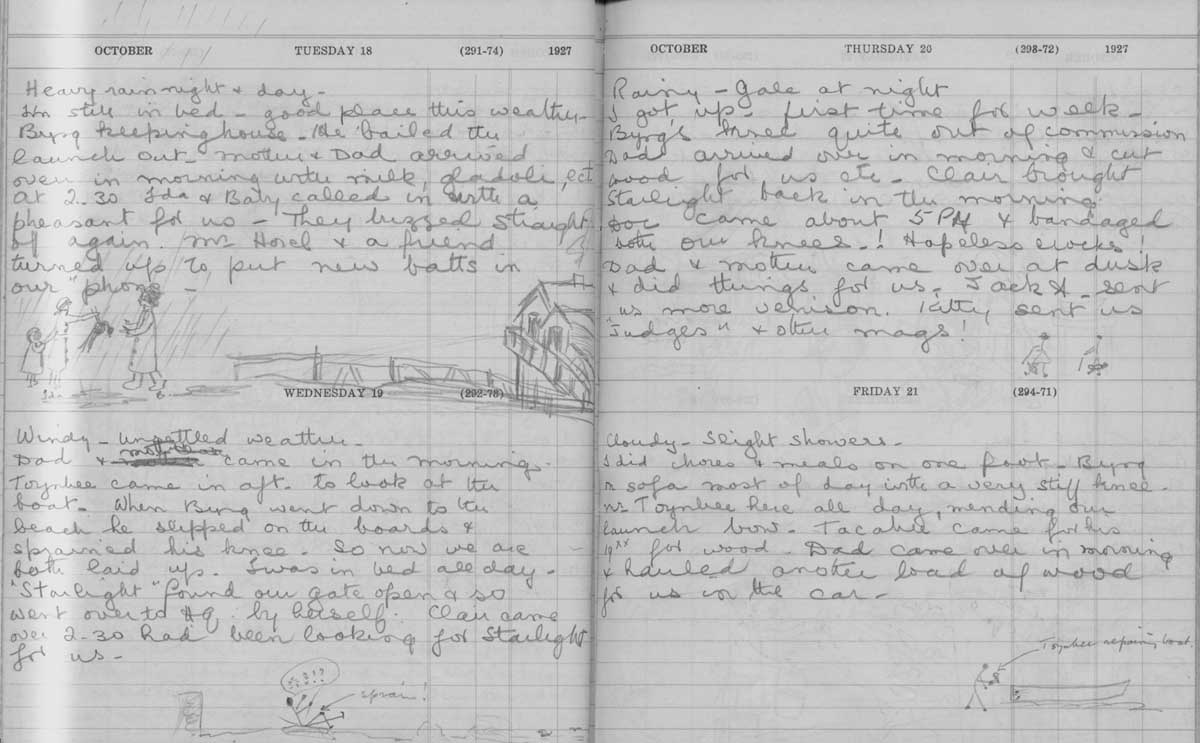 OCTOBER TUESDAY 18 (291-74) 1927
Heavy rain night & day -
Am still in bed - good place this weather -
Byng keeping house - He bailed the
launch out - Mother & Dad arrived
over in morning with milk, gladoli, ect
at 2-30 Ida & Baby called in with a
pheasant for us - They buzzed straight
off again. Mr Horel & a friend
turned up to put new batts in
our "phone" -
Ida B.
WEDNESDAY 19 (292-73)
Windy - unsettled weather -
Dad & mother came in the mornings -
Toynbee came in aft. to look at the
boat - When Byng went down to the
beach he slipped on the boards &
sprained his knee - So now we are
both laid up. I was in bed all day -
"Starlight" found our gate open & so
went over to HQ. by herself. Clair came
over 2-30 Had been looking for Starlight
for us -
??!!
sprain!
OCTOBER THURSDAY 20 (293-72) 1927
Rainy - Gale at night
I got up - first time for week -
Byng's knee quite out of commission
Dad arrived over in morning & cut
wood for us etc - Clair brought
Starlight back in the morning.
Doc came about 5 PM & bandaged
both our knees -! Hopeless crocks!
Dad & mother came over at dusk
& did things for us - Jack A - sent
us more venison. Kitty sent us
"Judges" & other mags!
FRIDAY 21 (294-71)
Cloudy - Slight showers -
I did chores & meals on one foot - Byng
on sofa most of day with a very stiff knee -
Mr Toynbee here all day, mending our
launch bow - came for his
for wood - Dad came over in morning
& hauled another load of wood
for us in the car -
Toynbee repairing boat.